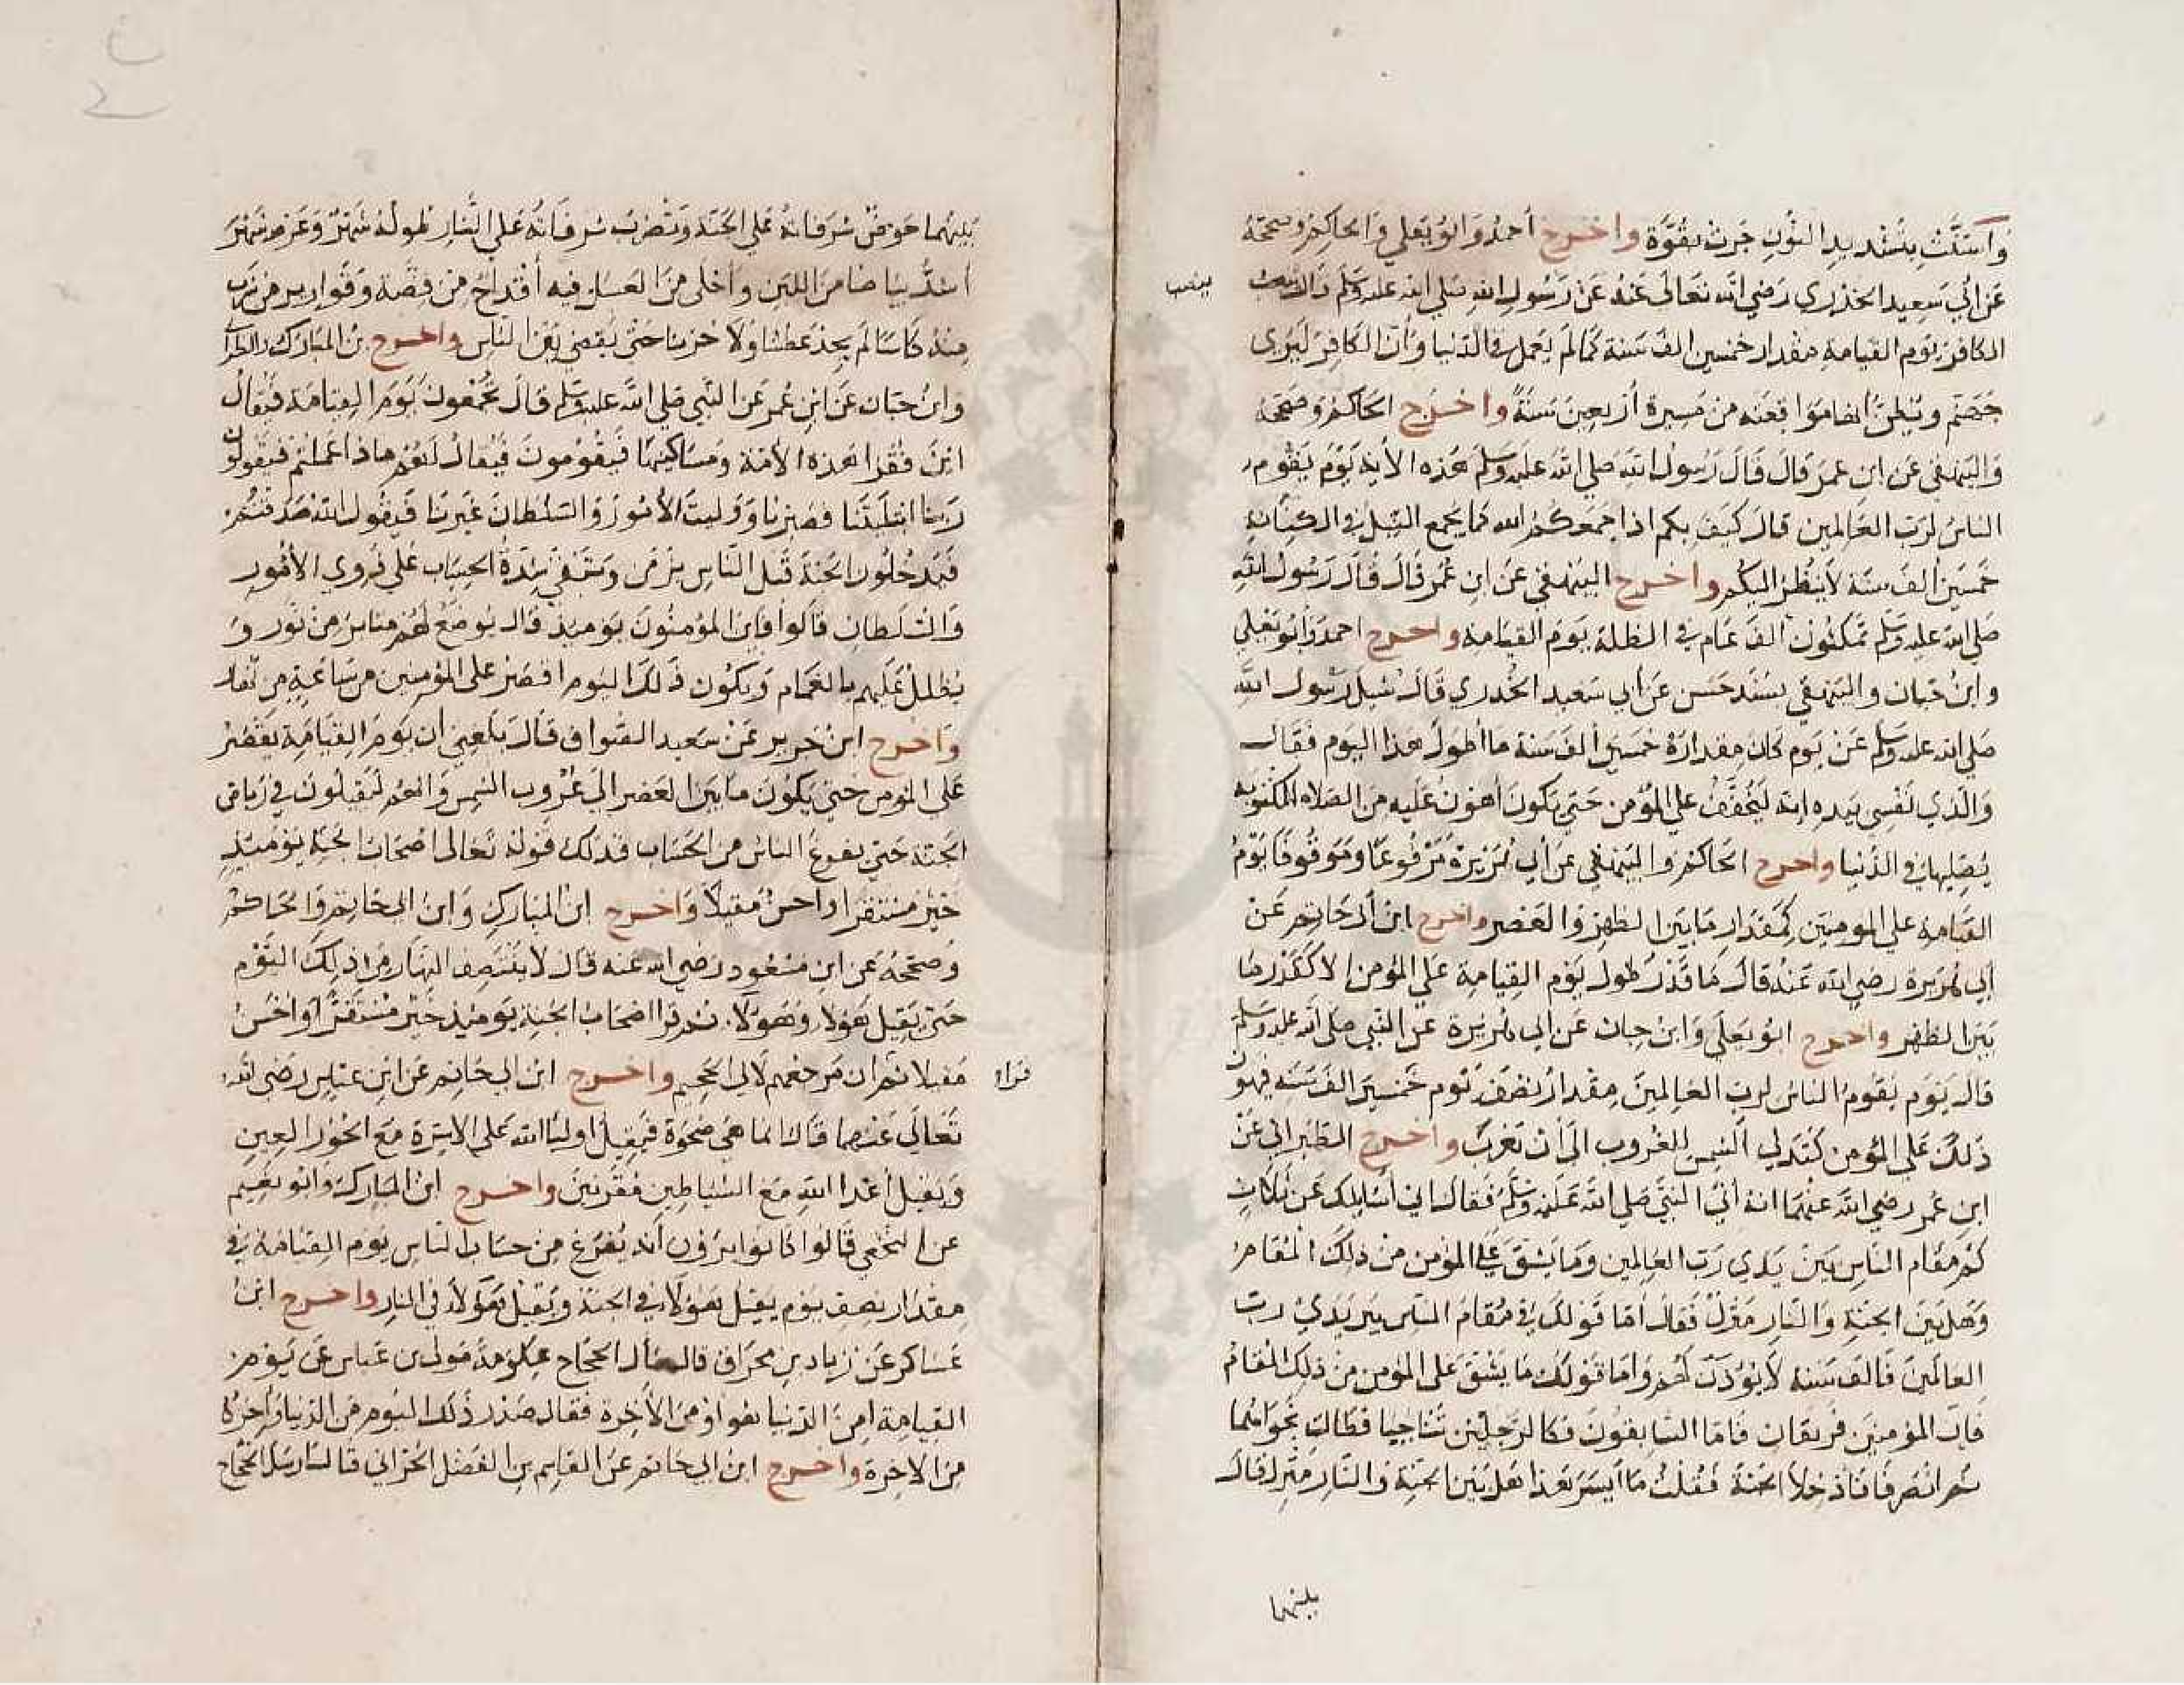 واستنّت بتشديد النون جرت بقوة واخرج أحمد وابو يعلي والحاكم وصححه
عن ابي سعيد الخدري رضي الله تعالى عنه عن رسول الله صلي الله عليه وسلم قال
ينصب
الكافر يوم القيامة مقدار خمسين الف سنة كما لم يعمل في الدنيا وان الكافر ليرى
جهنم ويظن انها مواقعته من مسيرة أربعين سنة واخرج الحاكم وصححه
والبيهقي عن ابن عمر قال قال رسول الله صلي الله عليه وسلم هذه الاية يوم يقوم
الناس لرب العالمين قال كيف بكم اذا جمعكم الله كما يجمع النبل في الكنانة
خمسين ألف سنة لا ينظر اليكم واخرج البيهقي عن ابن عمر قال قال رسول الله
صلي الله عليه وسلم تمكثون الف عام في الظلة يوم القيامة واخرج احمد وابو يعلي
وابن حبان والبيهقي بسند حسن عن أبي سعيد الخدري قال سُيل رسول الله
صلي الله عليه وسلم عن يوم كان مقداره خمسين ألف سنة ما أطول هذا اليوم فقال
والذي نفسي بيده انه ليخفف علي المؤمن حتى يكون أهون عليه من الصلاة المكتوبة
يصليها في الدنيا واخرج الحاكم والبيهقي عن أبي هريرة مرفوعا وموقوفا يوم
القيامة علي المومنين كمقدار ما بين الظهر والعصر واخرج ابن أبي حاتم عن
ابي هريرة رضي الله عنه قال ما قدر طول يوم القيامة علي المؤمن الا كقدر ما
بين الظهر واخرج ابو يعلى وابن حبان عن ابي هريرة عن النبي صلى الله عليه وسلم
قال يوم يقوم الناس لرب العالمين مقدار نصف يوم خمسين الف سنه فيهون
ذلك على المؤمن كتدلي الشمس للغروب الى ان تغرب واخرج الطبراني عن
ابن عمر رضي الله عنهما انه أتى النبي صلي الله عليه وسلم فقال اني أسايلك عن ثلاث
كم مقام الناس بين يدي رب العالمين وما يشق علي المؤمن من ذلك المقام
وهل بين الجنة والنار منزل فقال أما قولك في مقام الناس بين يدي رب
العالمين فالف سنه لا يؤذن لهم واما قولك ما يشق على المؤمن من ذلك المقام
فان المؤمنين فريقان فاما السابقون فكالرجلين تناجيا فطالت نجواهما
ثم انصرفا فادخلا الجنة فقلت ما أيسر هذا هل بين الجنة والنار منزل قال
بينهما
بينهما حوض شرفاته على الجنة وتضرب شرفاته على النار طوله شهر وعرضه شهر
أشد بياضا من اللبن وأحلى من العسل فيه أقداح من فضة وقوارير من شرب
منه كاسا لم يجد عطشا ولا حزنا حتى يقضي بين الناس واخرج بن المبارك والطبرا
وابن حبان عن ابن عمر عن النبي صلي الله عليه وسلم قال تجمعون يوم القيامة فيقال
اين فقرا هذه الامة ومساكينها فيقومون فيقال لهم ماذا عملتم فيقولون
ربنا ابتليتنا فصبرنا ووليت الأمور والسلطان غيرنا فيقول الله صدقتم
فيدخلون الجنة قبل الناس بزمن وتبقي شدة الحساب علي ذوي الأمور
والسلطان قالوا فاين المؤمنون يوميذ قال يوضع لهم منابر من نور و
يظلل عليهم بالغمام ويكون ذلك اليوم اقصر على المؤمنين من ساعة من نهار
واخرج ابن جرير عن سعيد الصواف قال بلغني ان يوم القيامة يقصر
على المؤمن حتى يكون ما بين العصر الى غروب الشمس وانهم ليقيلون في رياض
الجنة حتى يفرغ الناس من الحساب فذلك قوله تعالى اصحاب الجنة يوميذ
خير مستقرا واحسن مقيلا واخرج ابن المبارك وابن ابي حاتم والحاكم
وصححه عن ابن مسعود رضي الله عنه قال لا ينتصف النهار من ذلك اليوم
حتى يقيل هؤلا وهؤلا ثم قرا اصحاب الجنة يوميذ خير مستقرا واحسن
مقيلا ثم ان مرجعهم لالى الجحيم واخرج ابن ابي حاتم عن ابن عباس رضي الله
قراة
تعالى عنهما قال انما هي ضحوة فيقيل أوليا الله على الاسرة مع الحور العين
ويقيل أعدا الله مع الشياطين مقرنين واخرج ابن المبارك وابو نعيم
عن النخعي قالوا كانوا يرون أنه يفرغ من حساب الناس يوم القيامة في
مقدار نصف يوم يقيل هؤلا في الجنة ويقيل هؤلا في النار واخرج ابن
عساكر عن زياد بن مخراق قال سأل الحجاج عكرمة مولى بن عباس عن يوم
القيامة امن الدنيا هو او من الآخرة فقال صدر ذلك اليوم من الدنيا وآخره
من الاخرة واخرج ابن ابي حاتم عن القاسم بن الفضل الحراني قال ارسل الحجاج